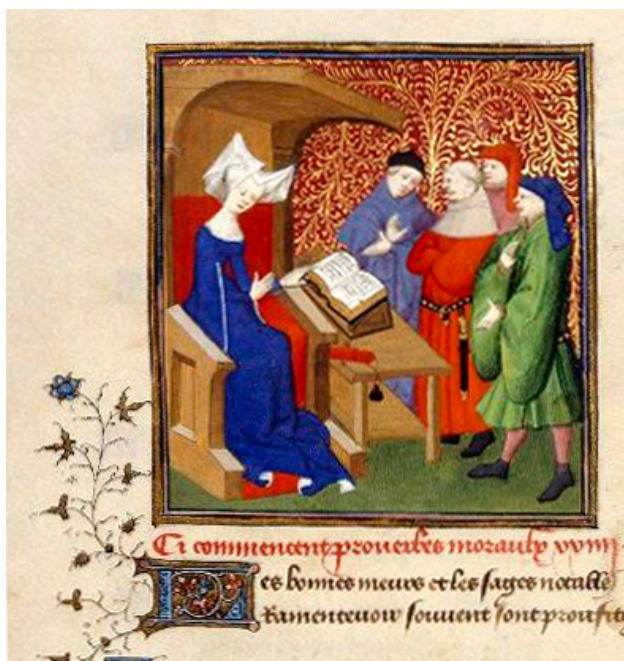 Ci commencent prouerbes moraulx
es bonnes meurs et les sages notable
Ramenteuoir souuent sont proufit